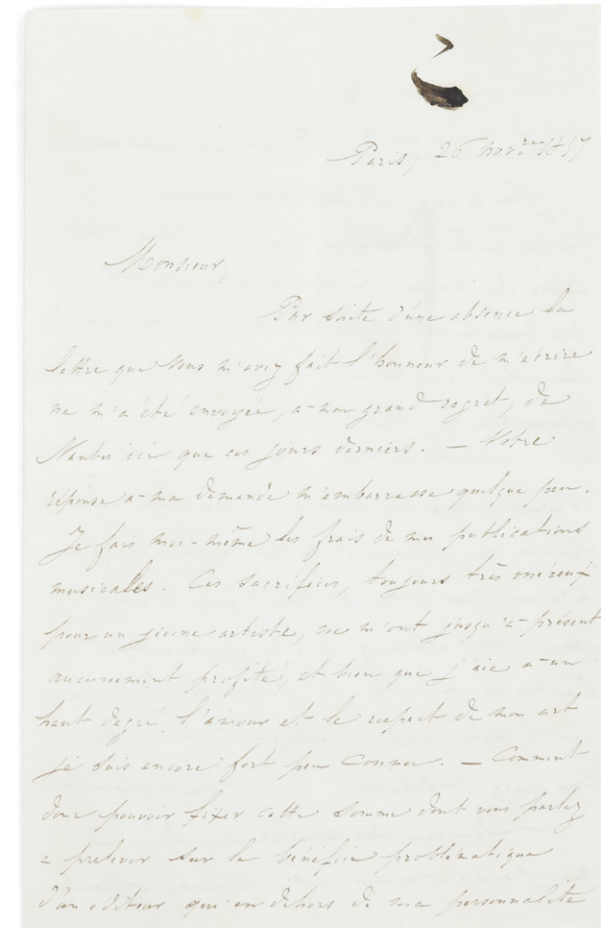 Paris, 26 novre 1857
Monsieur,
Par suite d'une absence la
lettre que vous m'avez fait l'honneur de m'écrire
ne m'a été envoyée, a-mon grand regret, de
Nantes ici que ces jours derniers. — Votre
réponse a-ma demande m'embarrasse quelque peu.
Je fais moi-même les frais de mes publications
musicales. Ces sacrifices, toujours très onéreux
pour un jeune artiste, ne m'ont jusqu'a-présent
aucunement profité, et bien que j'aie a-un
haut degré, l'amour et le respect de mon art
je suis encore fort peu connu. — Comment
donc pouvoir fixer cette somme dont vous parlez
a prelever sur le bénéfice problématique
d'un éditeur qui en dehors de ma personnalité